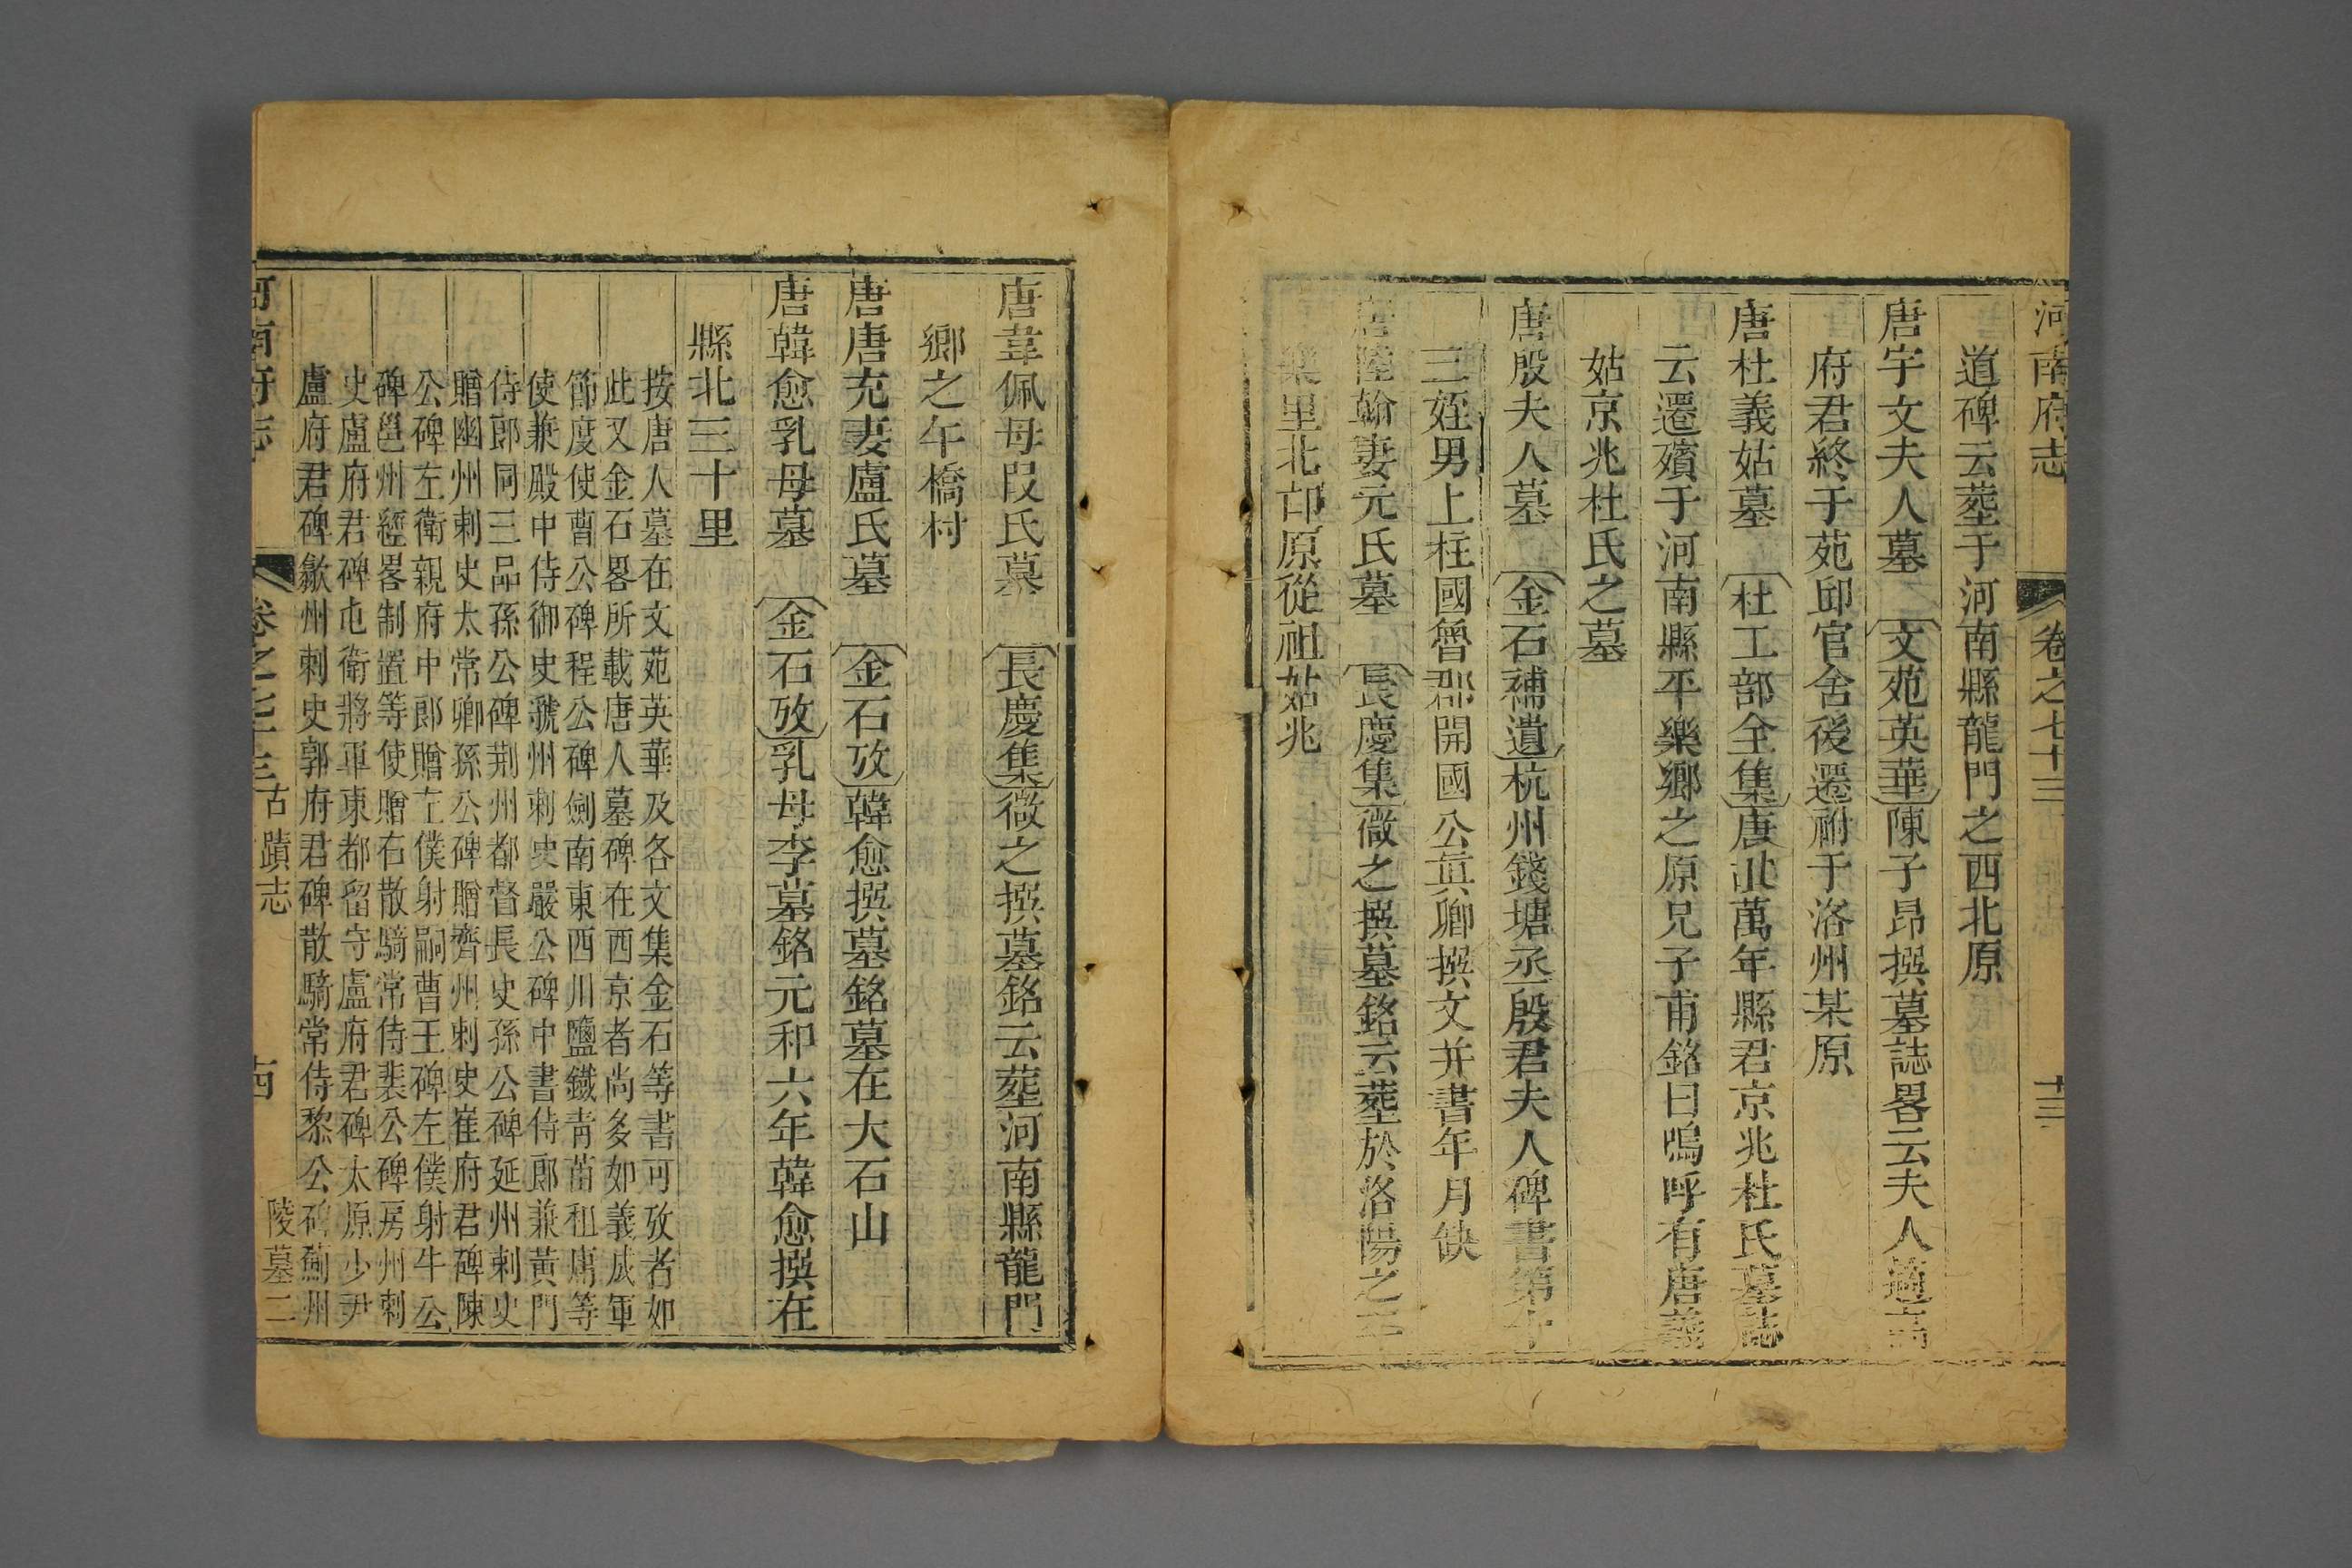 河南府志 卷之七十三 十三
道碑云葬于河南縣龍門之西北原
唐宇文夫人墓 文苑英華陳子昂撰墓誌畧云夫人適高
府君終于苑邱官舍後遷祔于洛州某原
唐杜義姑墓 杜工部全集唐故萬年縣君京兆杜氏墓誌
云遷殯于河南縣平樂鄉之原兄子甫銘曰嗚呼有唐義
姑京兆杜氏之墓
唐殷夫人墓 金石補遺杭州錢塘丞殷君夫人碑書第十
三姪男上柱國魯郡開國公眞卿撰文并書年月缺
唐陸翰妻元氏墓 長慶集薇之撰墓銘云葬於洛陽之平
樂里北邙原從祖姑兆
唐韋佩母段氏墓 長慶集薇之撰墓銘云葬河南縣龍門
鄉之午橋村
唐唐充妻盧氏墓 金石攷韓愈撰墓銘墓在大石山
唐韓愈乳母墓 金石攷乳母李墓銘元和六年韓愈撰在
縣北三十里
按唐人墓在文苑英華及各文集金石等書可攷者如
此又金石畧所載唐人墓碑在西京者尚多如義成軍
節度使曹公碑程公碑劍南東西川鹽鐵靑苗租庸等
使兼殿中侍御史虢州刺史嚴公碑中書侍郎兼黃門
侍郎同三品孫公碑荆州都督長史孫公碑延州刺史
贈幽州刺史太常卿孫公碑贈齊州刺史崔府君碑陳
公碑左衛親府中郎贈左僕射嗣曹王碑左僕射牛公
碑邕州經畧制置等使贈右散騎常侍裴公碑房州刺
史盧府君碑屯衛將軍東都留守盧府君碑太原少尹
盧府君碑歙州刺史郭府君碑散騎常侍黎公碑薊州
河南府志 卷之七十三 古蹟志 十四 陵墓二